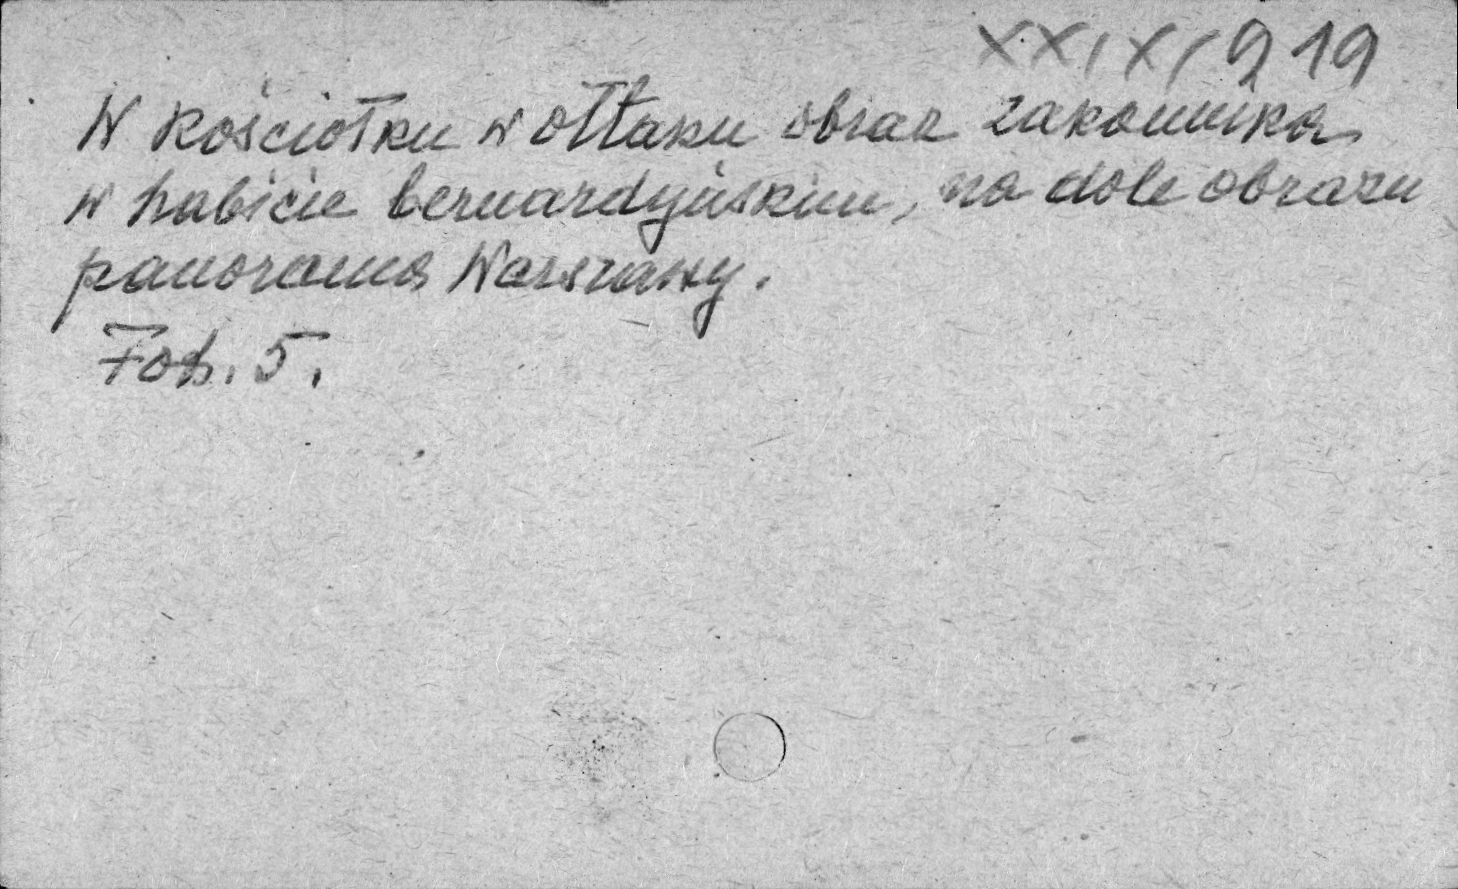 XXIX/919
W kościołku w ołtarzu obraz zakonnika
w habicie bernardyńskim, na dole obrazu
panorama Warszawy.
Fot. 5.